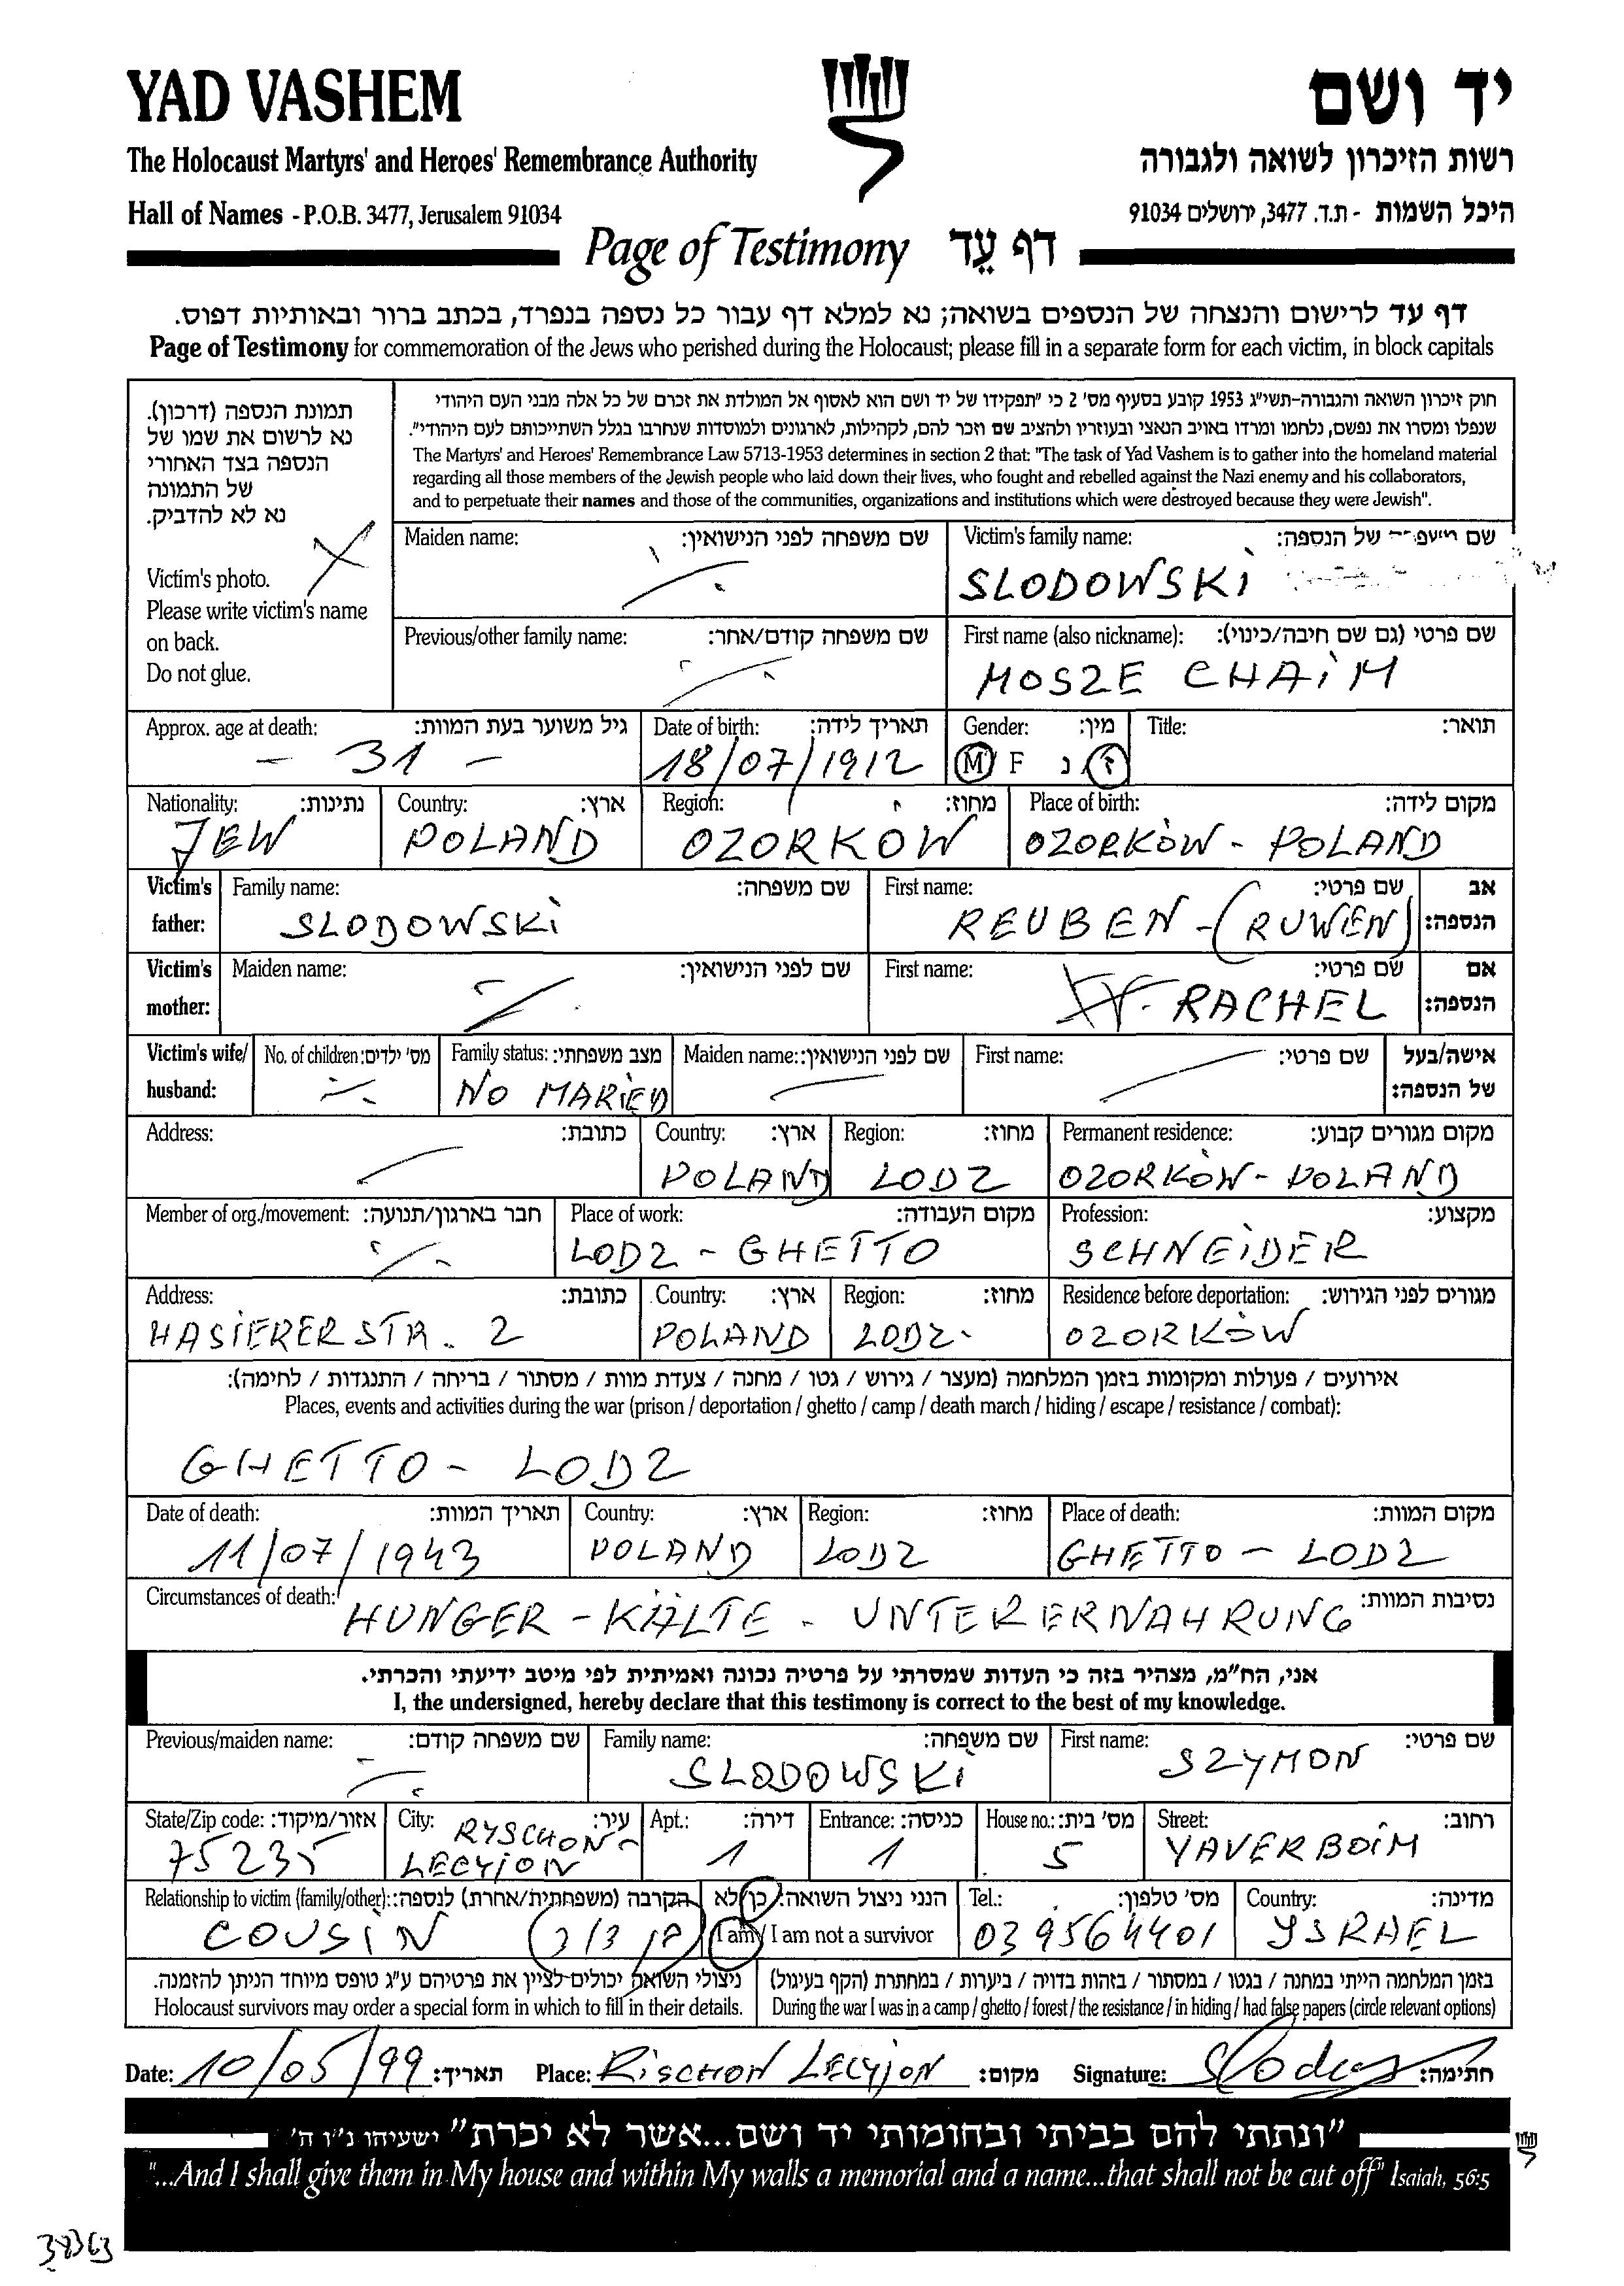 YAD VASHEM
יד ושם
The Holocaust Martyrs' and Heroes' Remembrance Authority
רשות הזיכרון לשואה ולגבורה
Hall of Names - P.O.B. 3477, Jerusalem 91034
היכל השמות - ת.ד. 3477, ירושלים 91034
Page of Testimony דף עֵד
דף עד לרישום והנצחה של הנספים בשואה; נא למלא דף עבור כל נספה בנפרד, בכתב ברור ובאותיות דפוס.
Page of Testimony for commemoration of the Jews who perished during the Holocaust; please fill in a separate form for each victim, in block capitals
תמונת הנספה (דרכון).
נא לרשום את שמו של
הנספה בצד האחורי
של התמונה
נא לא להדביק.
Victim's photo.
Please write victim's name
on back.
Do not glue.
חוק זיכרון השואה והגבורה-תשי"ג 1953 קובע בסעיף מס' 2 כי "תפקידו של יד ושם הוא לאסוף אל המולדת את זכרם של כל אלה מבני העם היהודי
שנפלו ומסרו את נפשם, נלחמו ומרדו באויב הנאצי ובעוזריו ולהציב שם וזכר להם, לקהילות, לארגונים ולמוסדות שנחרבו בגלל השתייכותם לעם היהודי".
The Martyrs' and Heroes' Remembrance Law 5713-1953 determines in section 2 that: "The task of Yad Vashem is to gather into the homeland material
regarding all those members of the Jewish people who laid down their lives, who fought and rebelled against the Nazi enemy and his collaborators,
and to perpetuate their names and those of the communities, organizations and institutions which were destroyed because they were Jewish".
Maiden name: שם משפחה לפני הנישואין: Victim's family name: שם משפחה של הנספה:
SLODOWSKI
Previous/other family name: שם משפחה קודם/אחר: First name (also nickname): שם פרטי (גם שם חיבה/כינוי):
MOSZE CHAIM
Approx. age at death: גיל משוער בעת המוות: Date of birth: תאריך לידה: Gender: מין: Title: תואר:
- 31 - 18/07/1912 M F נ ז
Nationality: נתינות: Country: ארץ: Region: מחוז: Place of birth: מקום לידה:
JEW POLAND OZORKOW OZORKÒW - POLAND
Victim's father: Family name: שם משפחה: First name: שם פרטי: אב הנספה:
SLODOWSKI REUBEN - (RUWEN)
Victim's mother: Maiden name: שם לפני הנישואין: First name: שם פרטי: אם הנספה:
RACHEL
Victim's wife/ husband: No. of children: מס' ילדים: Family status: מצב משפחתי: Maiden name: שם לפני הנישואין: First name: שם פרטי: אישה/בעל של הנספה:
NO MARIED
Address: כתובת: Country: ארץ: Region: מחוז: Permanent residence: מקום מגורים קבוע:
POLAND LODZ OZORKÒW - POLAND
Member of org./movement: חבר בארגון/תנועה: Place of work: מקום העבודה: Profession: מקצוע:
LODZ - GHETTO SCHNEIDER
Address: כתובת: Country: ארץ: Region: מחוז: Residence before deportation: מגורים לפני הגירוש:
HASIERERSTR. 2 POLAND LODZ- OZORKÒW
אירועים / פעולות ומקומות בזמן המלחמה (מעצר / גירוש / גטו / מחנה / צעדת מוות / מסתור / בריחה / התנגדות / לחימה):
Places, events and activities during the war (prison / deportation / ghetto / camp / death march / hiding / escape / resistance / combat):
GHETTO - LODZ
Date of death: תאריך המוות: Country: ארץ: Region: מחוז: Place of death: מקום המוות:
11/07/1943 POLAND LODZ GHETTO - LODZ
Circumstances of death: HUNGER - KÄLTE - UNTERERNAHRUNG נסיבות המוות:
אני, הח"מ, מצהיר בזה כי העדות שמסרתי על פרטיה נכונה ואמיתית לפי מיטב ידיעתי והכרתי.
I, the undersigned, hereby declare that this testimony is correct to the best of my knowledge.
Previous/maiden name: שם משפחה קודם: Family name: שם משפחה: First name: שם פרטי:
SLODOWSKI SZYMON
State/Zip code: אזור/מיקוד: City: עיר: Apt.: דירה: Entrance: כניסה: House no.: מס' בית: Street: רחוב:
75235 RYSCHON- LECYION 1 1 5 YAVERBOIM
Relationship to victim (family/other): הקרבה (משפחתית/אחרת) לנספה: הנני ניצול השואה: כן/לא Tel.: מס' טלפון: Country: מדינה:
COUSIN I am / I am not a survivor 039564401 YSRAEL
ניצולי השואה יכולים לציין את פרטיהם ע"ג טופס מיוחד הניתן להזמנה.
Holocaust survivors may order a special form in which to fill in their details.
בזמן המלחמה הייתי במחנה / בגטו / במסתור / בזהות בדויה / ביערות / במחתרת (הקף בעיגול)
During the war I was in a camp / ghetto / forest / the resistance / in hiding / had false papers (circle relevant options)
Date: 10/05/99 תאריך: Place: RISCHON LECYJON מקום: Signature: חתימה:
"ונתתי להם בביתי ובחומותי יד ושם...אשר לא יכרת" ישעיהו נ"ו ה'
"...And I shall give them in My house and within My walls a memorial and a name...that shall not be cut off" Isaiah, 56:5
38363